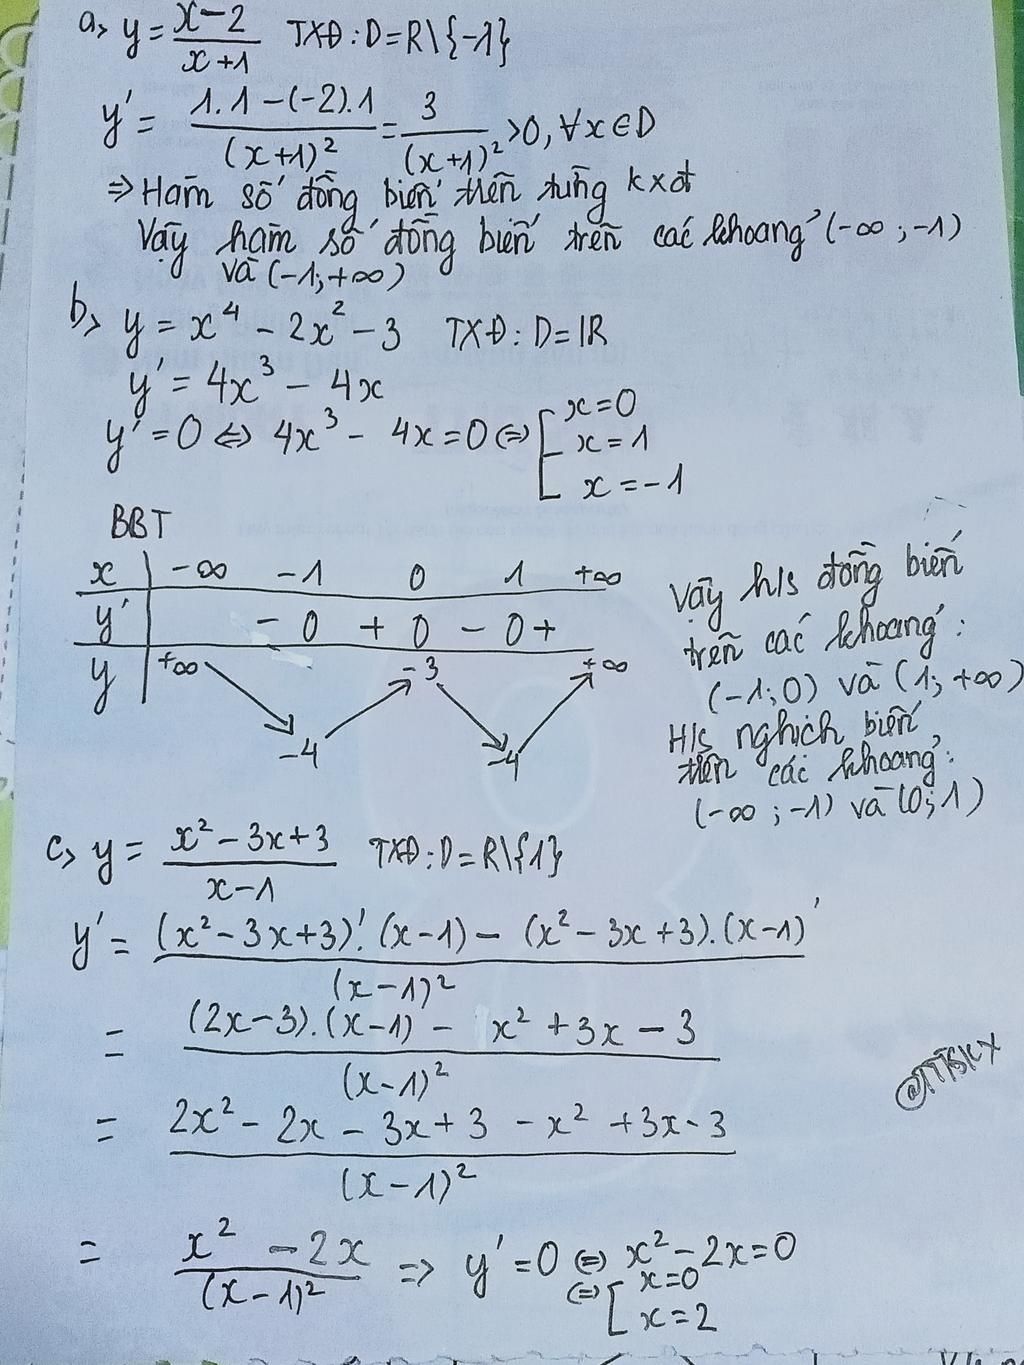 a, y = (x-2)/(x+1) TXĐ: D = R\{-1}
y' = (1.1-(-2).1)/(x+1)² = 3/(x+1)² >0, ∀x∈D
=> Hàm số đồng biến trên từng kxđ
Vậy hàm số đồng biến trên các khoảng (-∞; -1)
và (-1; +∞)
b, y = x⁴ - 2x² - 3 TXĐ: D = IR
y' = 4x³ - 4x
y' = 0 ⇔ 4x³ - 4x = 0 ⇔ [ x = 0
x = 1
x = -1
BBT
x | -∞ -1 0 1 +∞
y' | - 0 + 0 - 0 +
y | +∞ -4 -3 -4 +∞
Vậy h/s đồng biến
trên các khoảng:
(-1; 0) và (1; +∞)
H/s nghịch biến
trên các khoảng:
(-∞; -1) và (0; 1)
c, y = (x² - 3x + 3)/(x-1) TXĐ: D = R\{1}
y' = ((x² - 3x + 3)'.(x-1) - (x² - 3x + 3).(x-1)')/(x-1)²
= ((2x-3).(x-1) - x² + 3x - 3)/(x-1)²
= (2x² - 2x - 3x + 3 - x² + 3x - 3)/(x-1)²
= (x² - 2x)/(x-1)² => y' = 0 ⇔ x² - 2x = 0
⇔ [ x = 0
x = 2